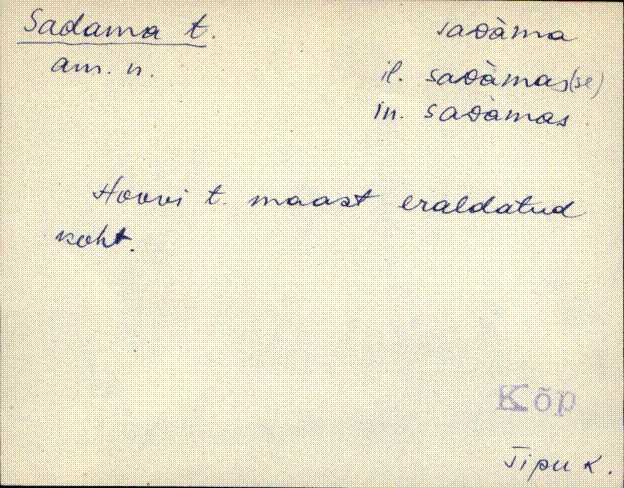 Sadama t.
saDàma
am. n.
il. saDàmas(se)
in. saDàmas
Hoovi t. maast eraldatud
koht.
Kõp
Tipu k.